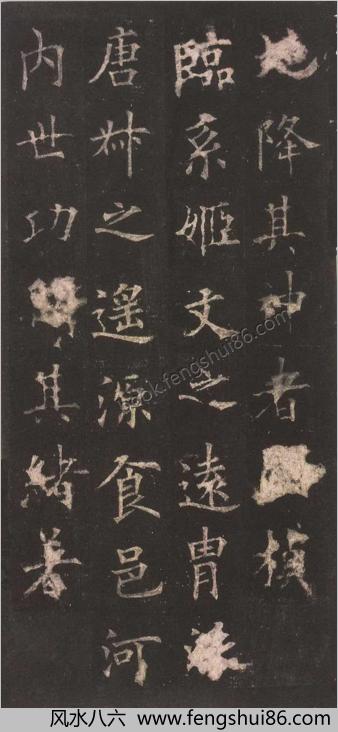 地降其神者楨
臨系姬文之遠胄
唐叔之遥源食邑河
内世功其緒著
book.fengshui86.com
风水八六 www.fengshui86.com